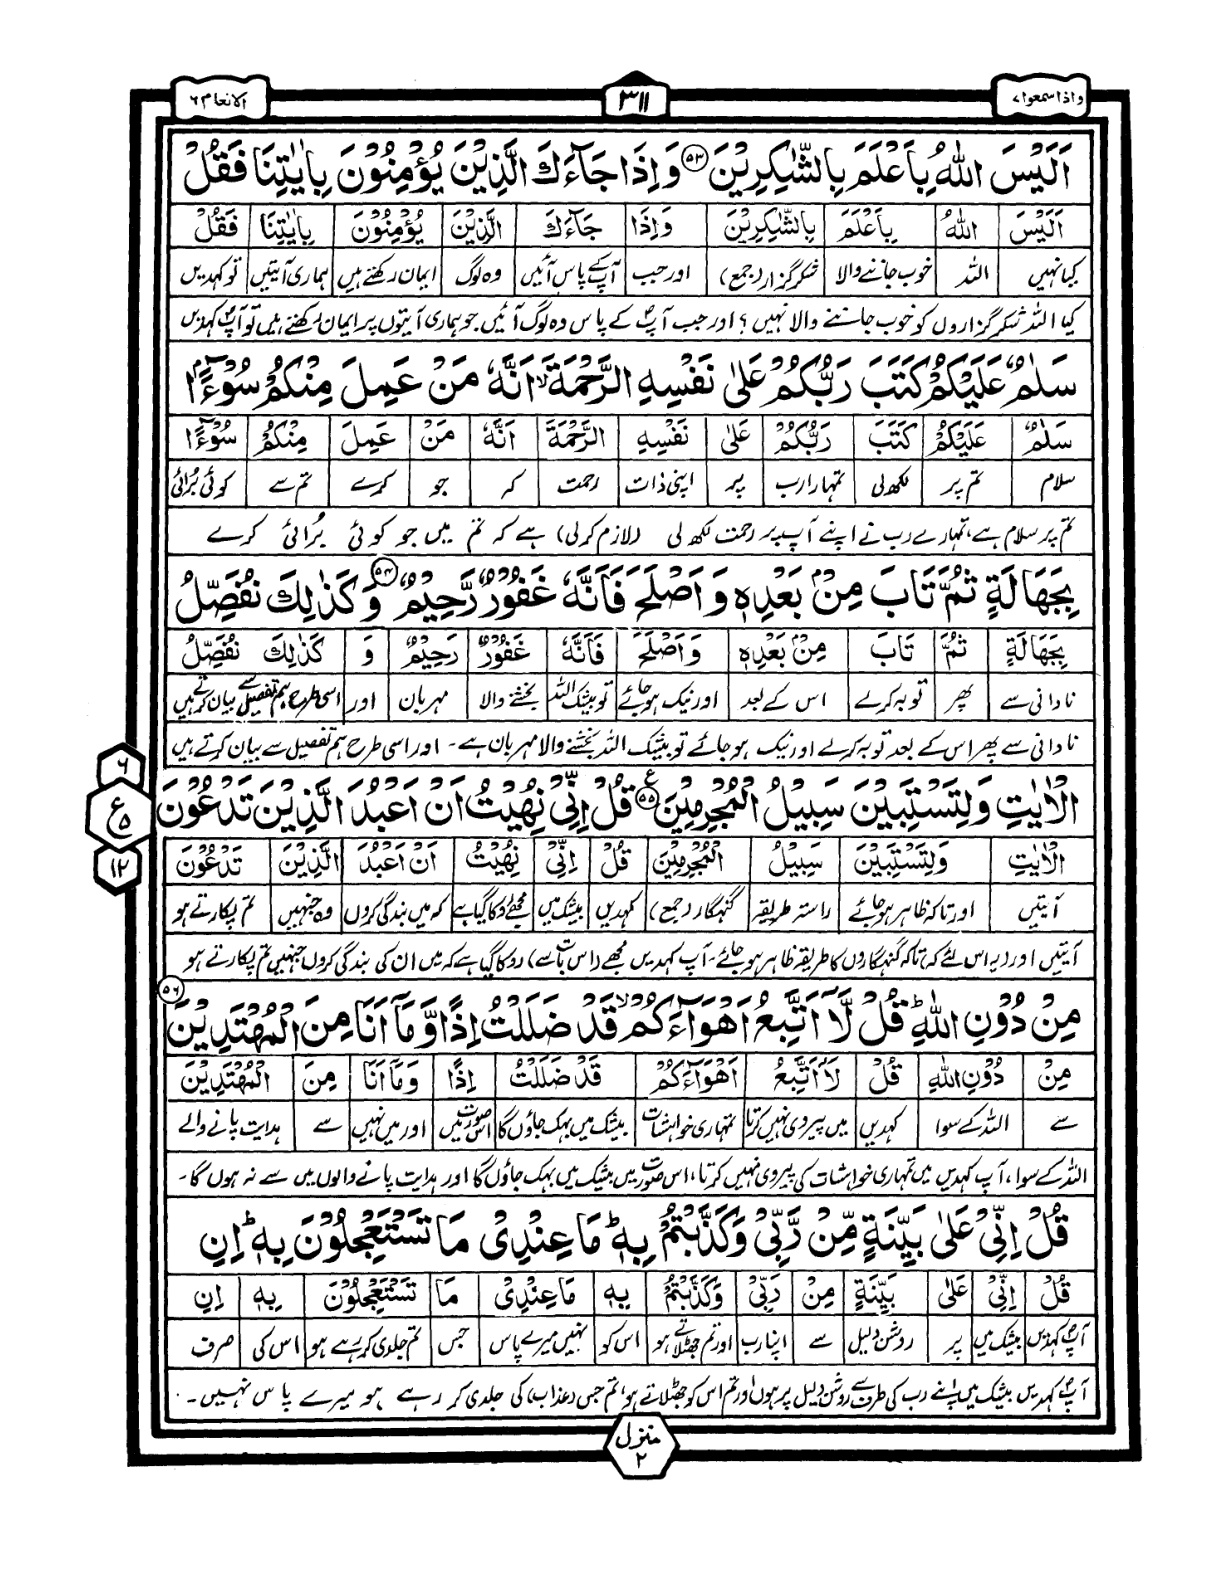 واذا سمعوا ۷
۳۱۱
الانعام ۶
اَلَيْسَ اللّٰهُ بِاَعْلَمَ بِالشّٰكِرِيْنَ ﴿۵۳﴾ وَاِذَا جَآءَكَ الَّذِيْنَ يُؤْمِنُوْنَ بِاٰيٰتِنَا فَقُلْ
اَلَيْسَ اللّٰهُ بِاَعْلَمَ بِالشّٰكِرِيْنَ وَاِذَا جَآءَكَ الَّذِيْنَ يُؤْمِنُوْنَ بِاٰيٰتِنَا فَقُلْ
کیا نہیں اللہ خوب جاننے والا شکر گزار (جمع) اور جب آپ کے پاس آئیں وہ لوگ ایمان رکھتے ہیں ہماری آیتیں تو کہدیں
کیا اللہ شکر گزاروں کو خوب جاننے والا نہیں؟ اور جب آپؐ کے پاس وہ لوگ آئیں جو ہماری آیتوں پر ایمان رکھتے ہیں تو آپؐ کہدیں
سَلٰمٌ عَلَيْكُمْ كَتَبَ رَبُّكُمْ عَلٰى نَفْسِهِ الرَّحْمَةَ ۙ اَنَّهٗ مَنْ عَمِلَ مِنْكُمْ سُوْٓءًۢا
سَلٰمٌ عَلَيْكُمْ كَتَبَ رَبُّكُمْ عَلٰى نَفْسِهِ الرَّحْمَةَ اَنَّهٗ مَنْ عَمِلَ مِنْكُمْ سُوْٓءًۢا
سلام تم پر لکھ لی تمہارا رب پر اپنی ذات رحمت کہ جو کرے تم سے کوئی بُرائی
تم پر سلام ہے، تمہارے رب نے اپنے آپ پر رحمت لکھ لی (لازم کرلی) ہے کہ تم میں جو کوئی بُرائی کرے
بِجَهَالَةٍ ثُمَّ تَابَ مِنْۢ بَعْدِهٖ وَاَصْلَحَ فَاَنَّهٗ غَفُوْرٌ رَّحِيْمٌ ﴿۵۴﴾ وَكَذٰلِكَ نُفَصِّلُ
بِجَهَالَةٍ ثُمَّ تَابَ مِنْۢ بَعْدِهٖ وَاَصْلَحَ فَاَنَّهٗ غَفُوْرٌ رَحِيْمٌ وَ كَذٰلِكَ نُفَصِّلُ
نادانی سے پھر توبہ کرلے اس کے بعد اور نیک ہوجائے تو بیشک اللہ بخشنے والا مہربان اور اسی طرح ہم تفصیل سے بیان کرتے ہیں
نادانی سے پھر اس کے بعد توبہ کرلے اور نیک ہو جائے تو بیشک اللہ بخشنے والا مہربان ہے۔ اور اسی طرح ہم تفصیل سے بیان کرتے ہیں
الْاٰيٰتِ وَلِتَسْتَبِيْنَ سَبِيْلُ الْمُجْرِمِيْنَ ﴿۵۵﴾ ع قُلْ اِنِّيْ نُهِيْتُ اَنْ اَعْبُدَ الَّذِيْنَ تَدْعُوْنَ
۶
ع ۵
۱۲
الْاٰيٰتِ وَلِتَسْتَبِيْنَ سَبِيْلُ الْمُجْرِمِيْنَ قُلْ اِنِّيْ نُهِيْتُ اَنْ اَعْبُدَ الَّذِيْنَ تَدْعُوْنَ
آیتیں اور تاکہ ظاہر ہوجائے راستہ طریقہ گنہگار (جمع) کہدیں بیشک میں مجھے روکا گیا ہے کہ میں بندگی کروں وہ جنہیں تم پکارتے ہو
آیتیں اور (یہ اس لئے کہ) تاکہ گنہگاروں کا طریقہ ظاہر ہوجائے۔ آپ کہدیں مجھے (اس بات سے) روکا گیا ہے کہ میں ان کی بندگی کروں جنہیں تم پکارتے ہو
مِنْ دُوْنِ اللّٰهِ ؕ قُلْ لَّاۤ اَتَّبِعُ اَهْوَآءَكُمْ ۙ قَدْ ضَلَلْتُ اِذًا وَّمَاۤ اَنَا مِنَ الْمُهْتَدِيْنَ ﴿۵۶﴾
مِنْ دُوْنِ اللّٰهِ قُلْ لَاۤ اَتَّبِعُ اَهْوَآءَكُمْ قَدْ ضَلَلْتُ اِذًا وَمَاۤ اَنَا مِنَ الْمُهْتَدِيْنَ
سے اللہ کے سوا کہدیں میں پیروی نہیں کرتا تمہاری خواہشات بیشک میں بہک جاؤں گا اس صورت میں اور میں نہیں سے ہدایت پانے والے
اللہ کے سوا، آپ کہدیں میں تمہاری خواہشات کی پیروی نہیں کرتا، اس صورت میں بیشک میں بہک جاؤں گا اور ہدایت پانے والوں میں سے نہ ہوں گا۔
قُلْ اِنِّيْ عَلٰى بَيِّنَةٍ مِّنْ رَّبِّيْ وَكَذَّبْتُمْ بِهٖ ؕ مَا عِنْدِيْ مَا تَسْتَعْجِلُوْنَ بِهٖ ؕ اِنِ
قُلْ اِنِّيْ عَلٰى بَيِّنَةٍ مِنْ رَبِّيْ وَكَذَّبْتُمْ بِهٖ مَا عِنْدِيْ مَا تَسْتَعْجِلُوْنَ بِهٖ اِنِ
آپؐ کہدیں بیشک میں پر روشن دلیل سے اپنا رب اور تم جھٹلاتے ہو اس کو نہیں میرے پاس جس تم جلدی کر رہے ہو اس کی صرف
آپؐ کہدیں بیشک میں اپنے رب کی طرف سے روشن دلیل پر ہوں اور تم اس کو جھٹلاتے ہو، تم جس (عذاب) کی جلدی کر رہے ہو میرے پاس نہیں۔
منزل ۲